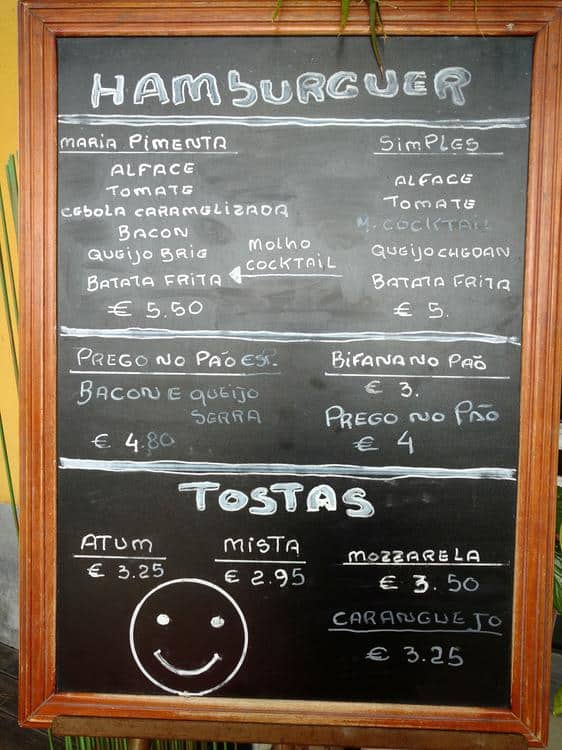 HAMBURGUER
MARIA PIMENTA
ALFACE
TOMATE
CEBOLA CARAMELIZADA
BACON
QUEIJO BRIE
BATATA FRITA
€ 5.50
MOLHO
COCKTAIL
SIMPLES
ALFACE
TOMATE
M. COCKTAIL
QUEIJO CHEDAN
BATATA FRITA
€ 5.
PREGO NO PÃO ESP.
BACON E QUEIJO
SERRA
€ 4.80
BIFANA NO PÃO
€ 3.
PREGO NO PÃO
€ 4
TOSTAS
ATUM
€ 3.25
MISTA
€ 2.95
MOZZARELA
€ 3.50
CARANGUEJO
€ 3.25